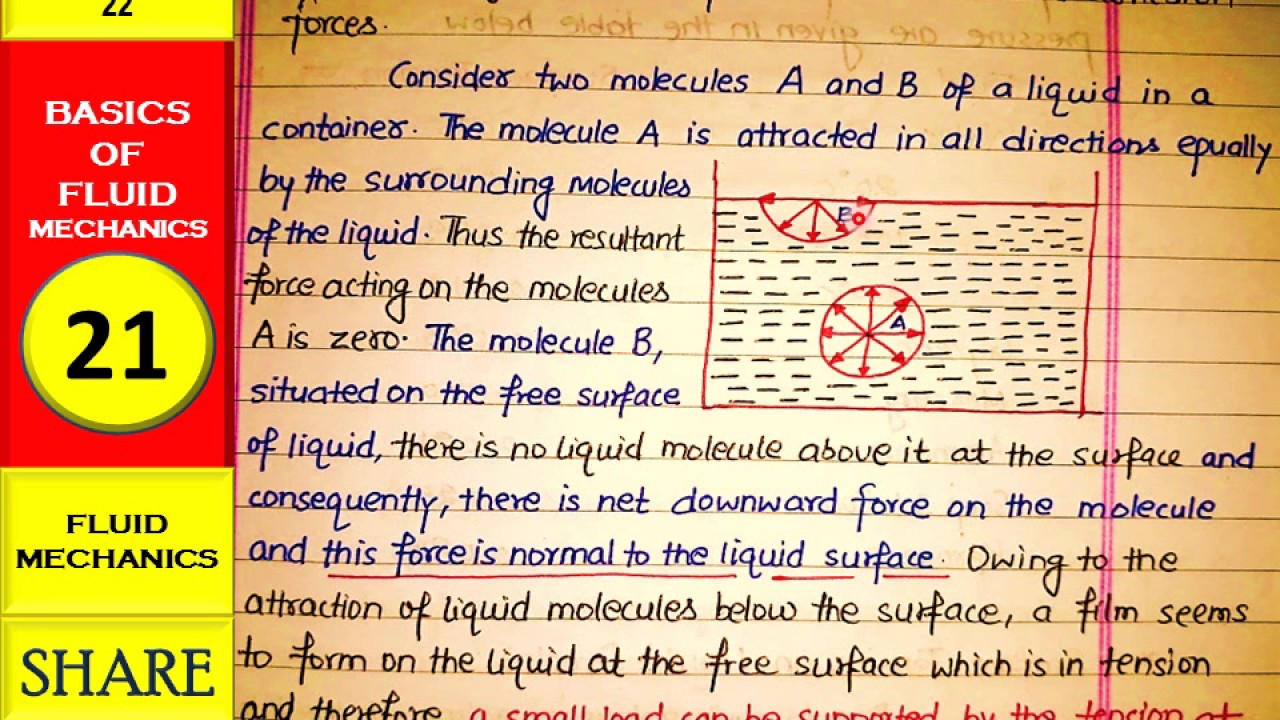 22
BASICS
OF
FLUID
MECHANICS
21
FLUID
MECHANICS
SHARE
forces.
pressure are given in the table below
Consider two molecules A and B of a liquid in a
container. The molecule A is attracted in all directions equally
by the surrounding molecules
of the liquid. Thus the resultant
force acting on the molecules
A is zero. The molecule B,
situated on the free surface
of liquid, there is no liquid molecule above it at the surface and
consequently, there is net downward force on the molecule
and this force is normal to the liquid surface. Owing to the
attraction of liquid molecules below the surface, a film seems
to form on the liquid at the free surface which is in tension
and therefore a small load can be supported by the tension at
B
A